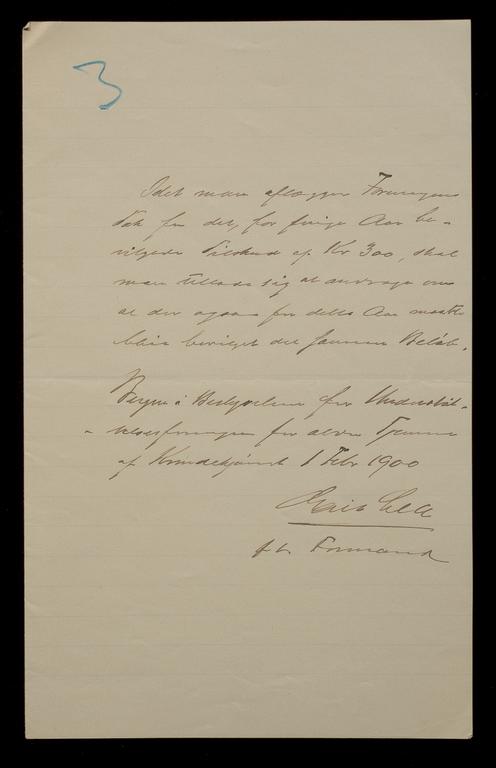 3
Idet man aflægger Foreningens
Tak for det, for forrige Aar be-
vilgede Tilskud af Kr 300, skal
man tillade sig at andrage om
at der ogsaa for dette Aar maatte
blive bevilget det samme Beløb.
Bergen i Bestyrelsen for Understøt-
telsesforeningen for ældre Tjenere
af Kvindekjønnet 1 Febr 1900
f t Formand